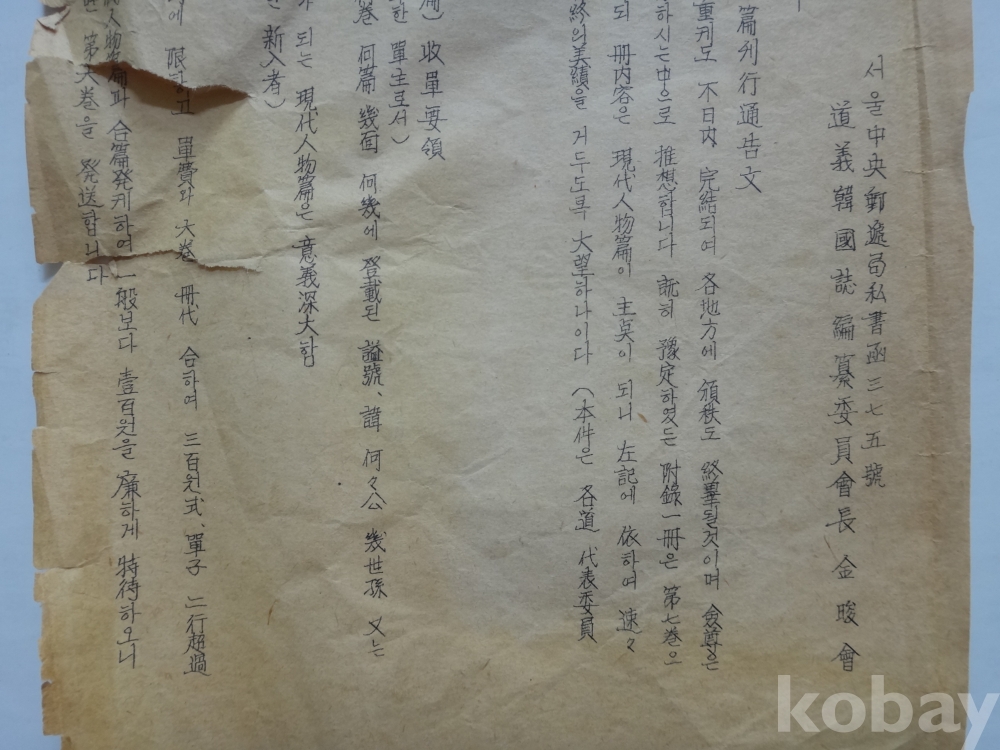 서울中央郵遞局私書函三七五號
道義韓國誌編纂委員會長 金晙會
篇刊行通告文
重刊도 不日內 完結되여 各地方에 頒秩도 終畢될것이며 僉尊은
하시는中으로 推想합니다 旣히 豫定하였든 附錄一冊은 第七卷으
되 冊內容은 現代人物篇이 主眞이 되니 左記에 依하여 速々
終의美績을 거두도록 大望하나이다 (本件은 各道 代表委員
收單要領
한 單主로서)
卷 何篇 幾面 何幾에 登載된 諡號、諱 何々公 幾世孫 又는
되는 現代人物篇은 意義深大함
新入者)
에 限하고 單費와 六卷 冊代 合하여 三百원式、單子 二行超過
合篇発刊하여 一般보다 壹百원을 廉하게 特待하오니
第六卷을 発送합니다
kobay